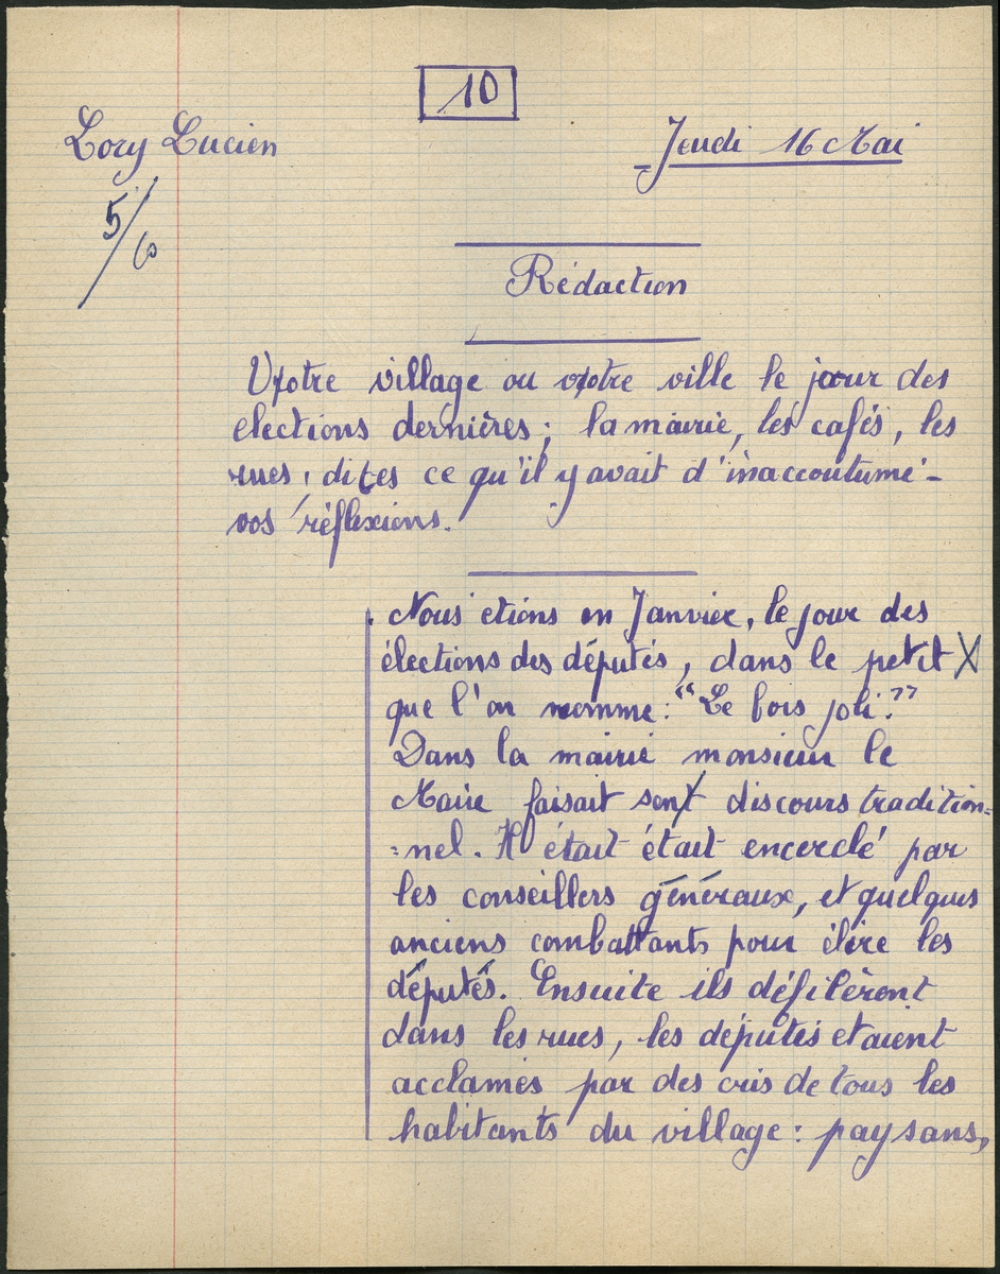 10
Lory Lucien
Jeudi 16 Mai
5/6
Rédaction
Votre village ou votre ville le jour des
elections dernières ; la mairie, les cafés, les
rues, dites ce qu'il y avait d'inaccoutumé -
vos réflexions.
Nous etions en Janvier, le jour des
élections des députés, dans le petit X
que l'on nomme : "Le bois joli."
Dans la mairie monsieur le
Maire faisait sont discours tradition=
=nel. Il était était encerclé par
les conseillers généraux, et quelques
anciens combattants pour élire les
députés. Ensuite ils défilèront
dans les rues, les députés etaient
acclamés par des cris de tous les
habitants du village : paysans,